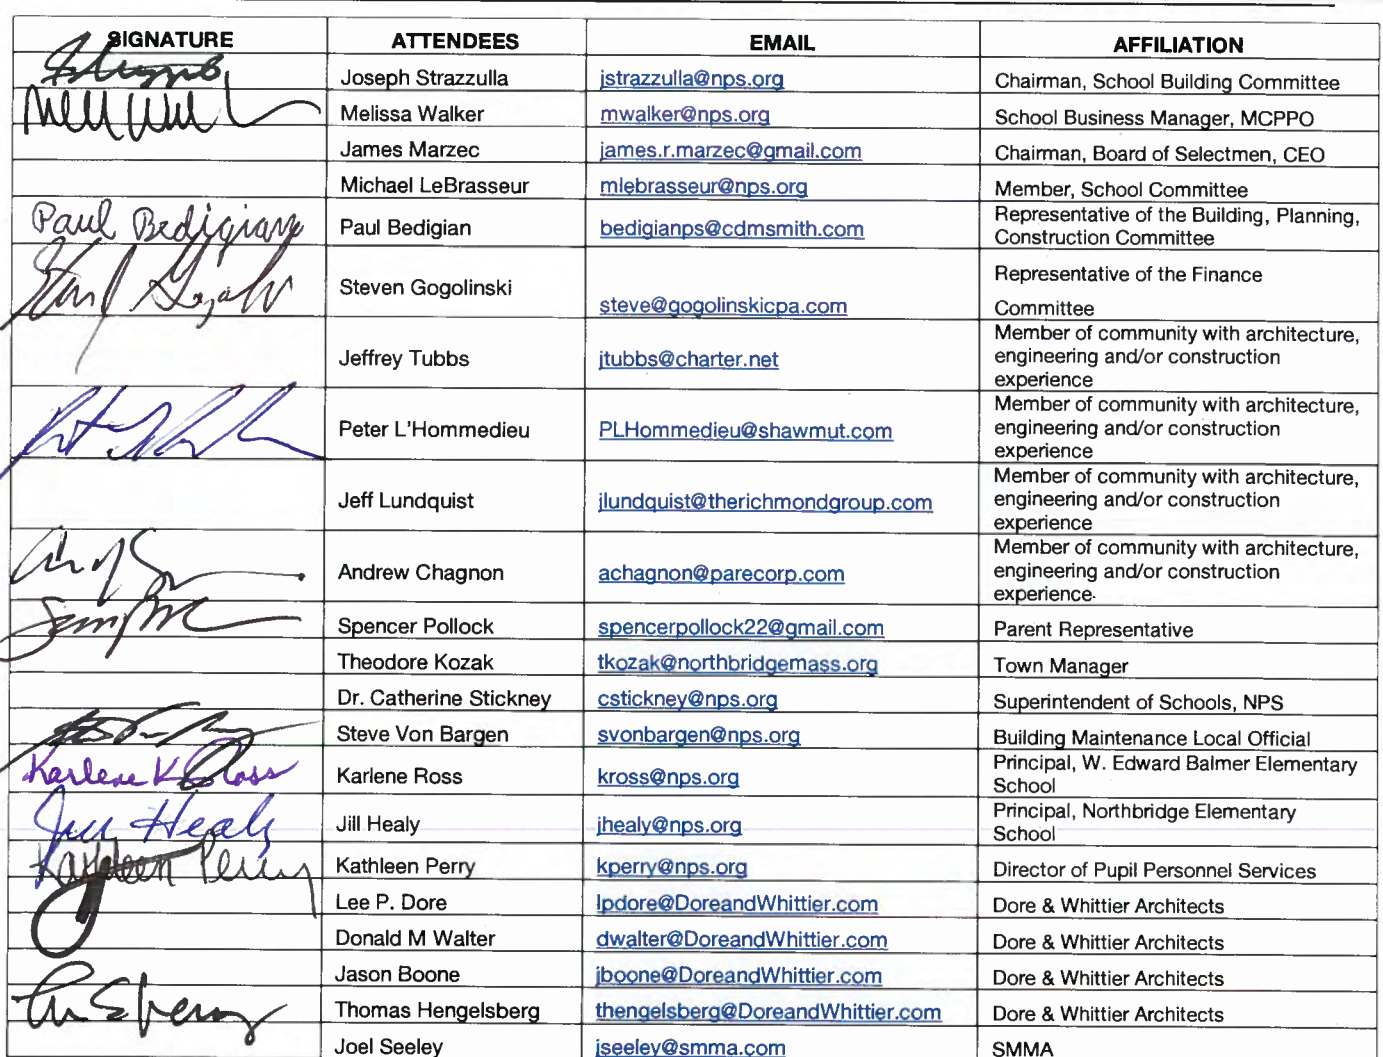 SIGNATURE ATTENDEES EMAIL AFFILIATION
Joseph Strazzulla jstrazzulla@nps.org Chairman, School Building Committee
Melissa Walker mwalker@nps.org School Business Manager, MCPPO
James Marzec james.r.marzec@gmail.com Chairman, Board of Selectmen, CEO
Michael LeBrasseur mlebrasseur@nps.org Member, School Committee
Paul Bedigian Paul Bedigian bedigianps@cdmsmith.com Representative of the Building, Planning,
Construction Committee
Steven Gogolinski steve@gogolinskicpa.com Representative of the Finance
Committee
Jeffrey Tubbs jtubbs@charter.net Member of community with architecture,
engineering and/or construction
experience
Peter L'Hommedieu PLHommedieu@shawmut.com Member of community with architecture,
engineering and/or construction
experience
Jeff Lundquist jlundquist@therichmondgroup.com Member of community with architecture,
engineering and/or construction
experience
Andrew Chagnon achagnon@parecorp.com Member of community with architecture,
engineering and/or construction
experience.
Spencer Pollock spencerpollock22@gmail.com Parent Representative
Theodore Kozak tkozak@northbridgemass.org Town Manager
Dr. Catherine Stickney cstickney@nps.org Superintendent of Schools, NPS
Steve Von Bargen svonbargen@nps.org Building Maintenance Local Official
Karlene K Ross Karlene Ross kross@nps.org Principal, W. Edward Balmer Elementary
School
Jill Healy Jill Healy jhealy@nps.org Principal, Northbridge Elementary
School
Kathleen Perry Kathleen Perry kperry@nps.org Director of Pupil Personnel Services
Lee P. Dore lpdore@DoreandWhittier.com Dore & Whittier Architects
Donald M Walter dwalter@DoreandWhittier.com Dore & Whittier Architects
Jason Boone jboone@DoreandWhittier.com Dore & Whittier Architects
Thomas Hengelsberg thengelsberg@DoreandWhittier.com Dore & Whittier Architects
Joel Seeley jseeley@smma.com SMMA